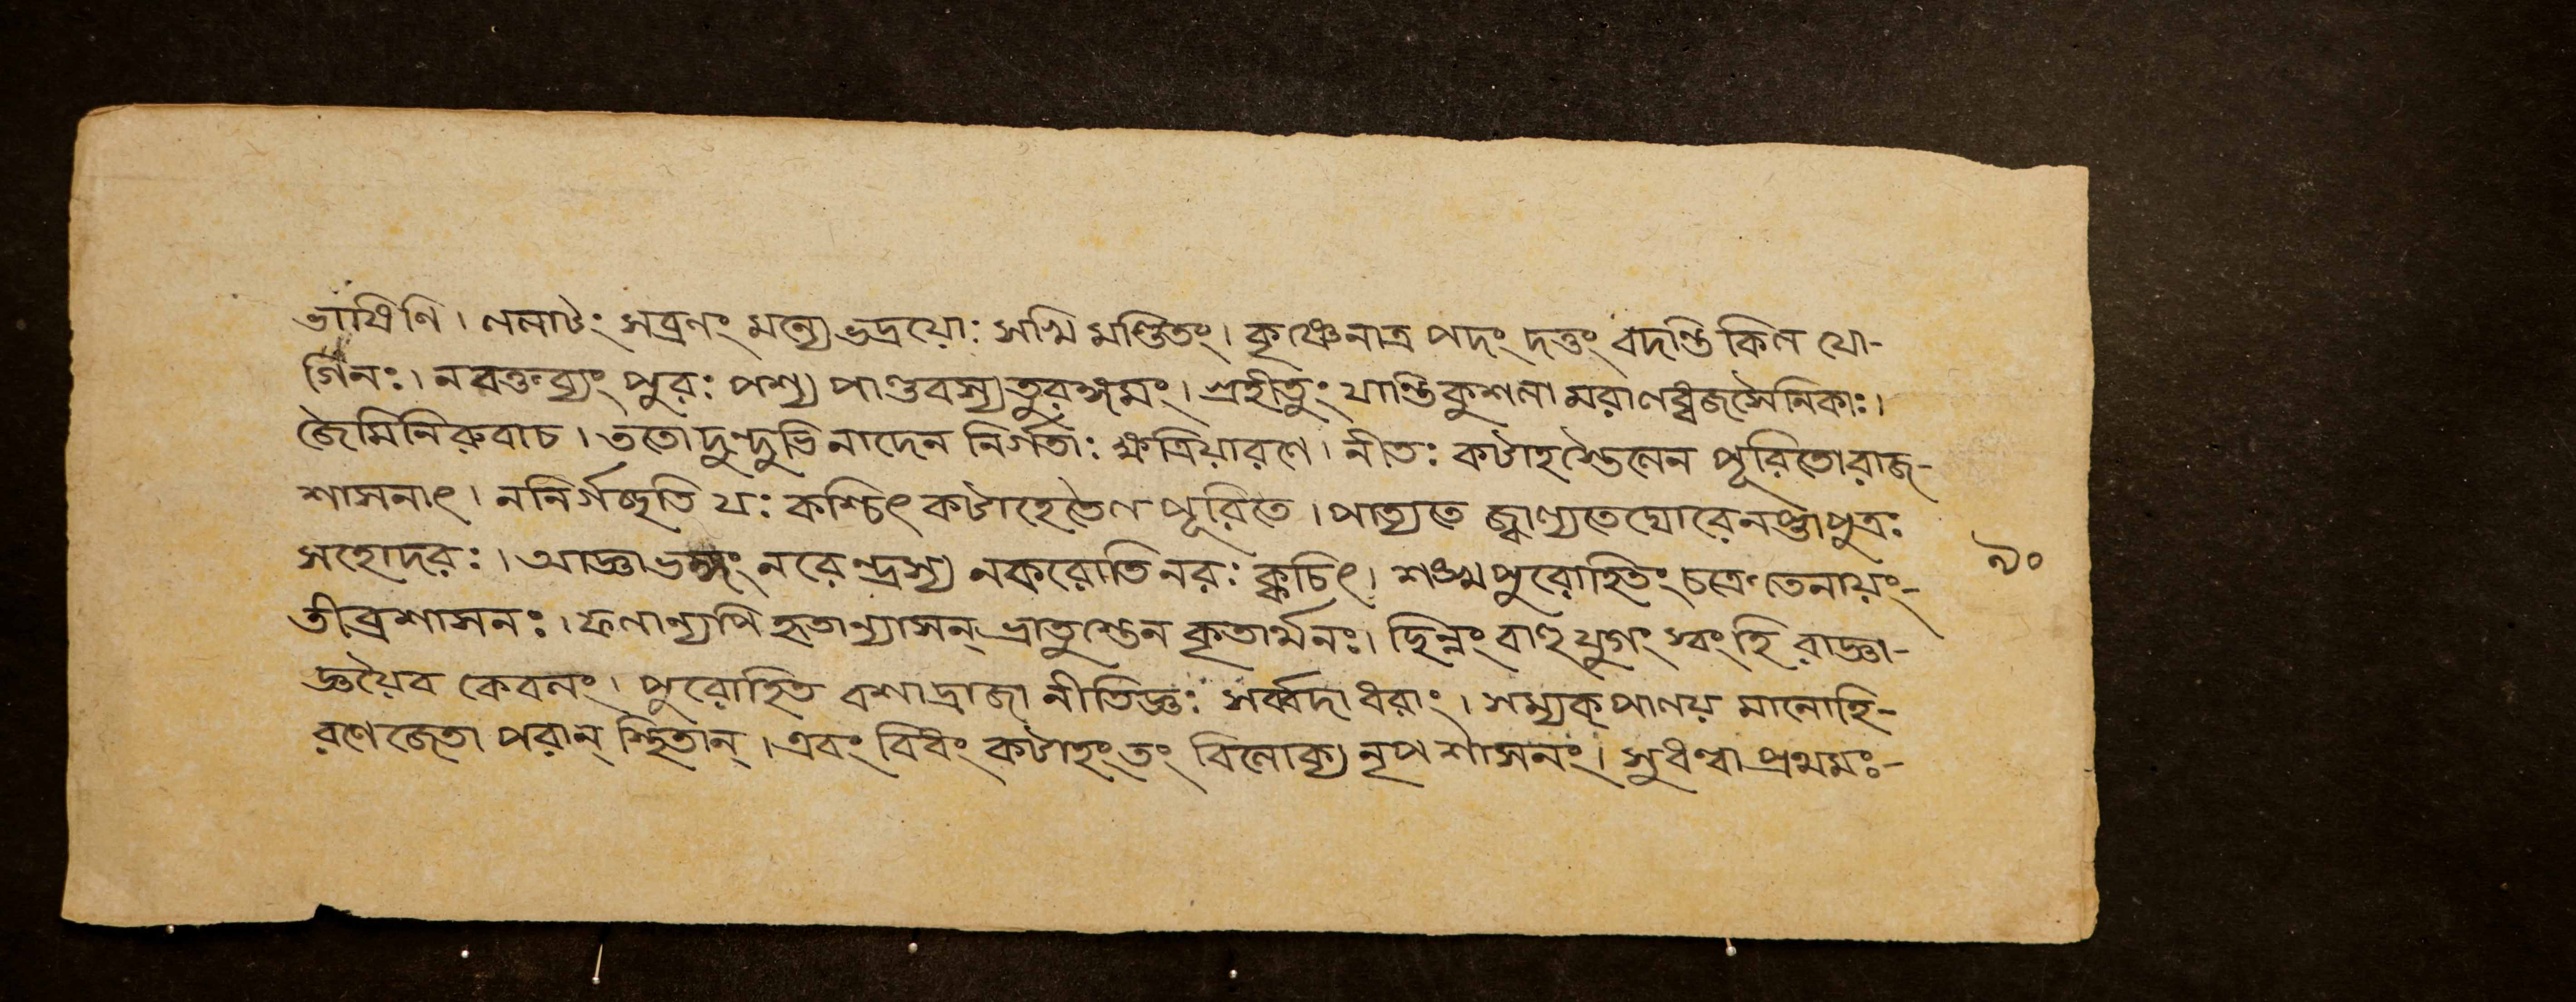 ভাষিণি। ললাটং সব্রণং মন্যে ভদ্রয়োঃ সখি মণ্ডিতং। কৃষ্ণেনাত্র পদং দত্তং বদন্তি কিল যো-
গিনঃ। ন বক্তব্যং পুরঃ পশ্য পাণ্ডবস্য তুরঙ্গমং। গ্রহীতুং যান্তি কুশলা মরালধ্বজসৈনিকাঃ।
জৈমিনিরুবাচ। ততো দুন্দুভিনাদেন নির্গতাঃ ক্ষত্রিয়ারণে। নীতঃ কটাহস্তৈলেন পূরিতো রাজ-
শাসনাৎ। ন নির্গচ্ছতি যঃ কশ্চিৎ কটাহে তৈল পূরিতে। পাত্যতে জ্বাল্যতে ঘোরে নপ্তাপুত্রঃ
সহোদরঃ। আজ্ঞাভঙ্গং নরেন্দ্রস্য ন করোতি নরঃ ক্বচিৎ। শঙ্খপুরোহিতং চক্রে তেনায়ং-
তীব্রশাসনঃ। ফলান্যপি হৃতান্যাসন্ ভ্রাতুস্তেন কৃতার্থনঃ। ছিন্নং বাহুযুগং স্বং হি রাজ্ঞা-
জ্ঞয়ৈব কেবলং। পুরোহিত বশাদ্রাজা নীতিজ্ঞঃ সর্ব্বদা ধরাং। সম্যক্ পালয় মানোহি-
রণে জেতা পরান্ স্থিতান্। এবং বিধং কটাহং তং বিলোক্য নৃপ শাসনং। সুধন্বা প্রথমঃ-
৯০